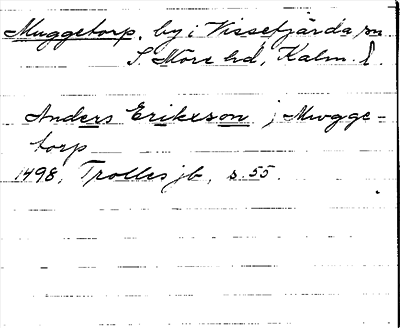 Muggetorp, by i Vissefjärda sn
S. Möre hd, Kalm. l.
Anders Erikxson i Mwgge-
torp
1498, Trolles jb, s. 55.